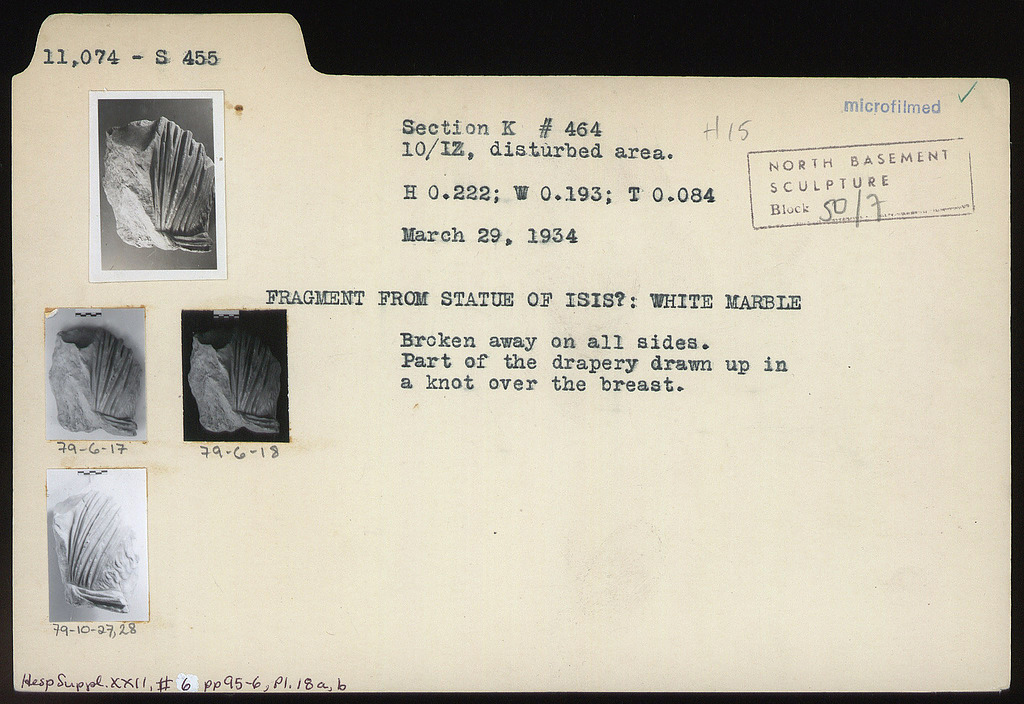 11,074 - S 455
microfilmed ✓
Section K # 464
H15
10/IZ, disturbed area.
NORTH BASEMENT
SCULPTURE
Block 50/7
H 0.222; W 0.193; T 0.084
March 29, 1934
FRAGMENT FROM STATUE OF ISIS?: WHITE MARBLE
Broken away on all sides.
Part of the drapery drawn up in
a knot over the breast.
79-6-17
79-6-18
79-10-27,28
Hesp Suppl. XXII, # 6 pp 95-6, Pl. 18 a, b